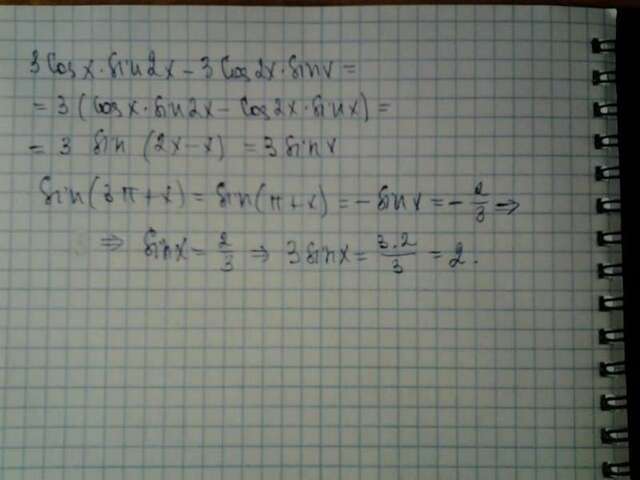 3 Cos x · Sin 2x - 3 Cos 2x · Sin x =
= 3 (Cos x · Sin 2x - Cos 2x · Sin x) =
= 3 Sin (2x - x) = 3 Sin x
Sin (3π + x) = Sin (π + x) = - Sin x = - 2/3 ⇒
⇒ Sin x = 2/3 ⇒ 3 Sin x = 3 · 2/3 = 2.